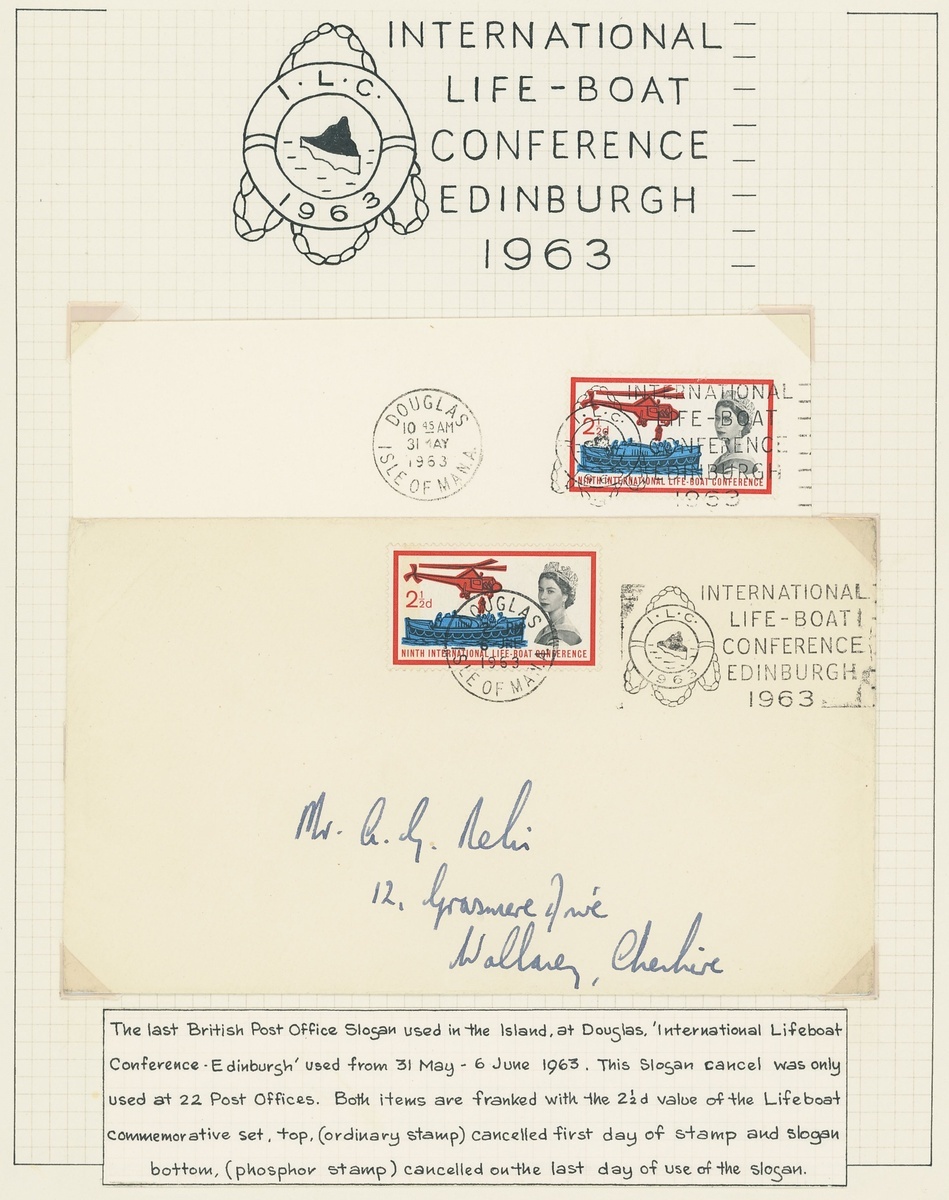 INTERNATIONAL
LIFE-BOAT
CONFERENCE
EDINBURGH
1963
I·L·C·
1963
DOUGLAS
10 45 AM
31 MAY
1963
ISLE OF MAN.A.
2½d
NINTH INTERNATIONAL LIFE-BOAT CONFERENCE
I·L·C·
INTERNATIONAL
LIFE-BOAT
CONFERENCE
EDINBURGH
1963
2½d
NINTH INTERNATIONAL LIFE-BOAT CONFERENCE
DOUGLAS
1963
ISLE OF MAN.A.
I·L·C·
1963
INTERNATIONAL
LIFE-BOAT
CONFERENCE
EDINBURGH
1963
Mr. A. G.
12, Grasmere Drive
Wallasey, Cheshire
The last British Post Office Slogan used in the Island, at Douglas, 'International Lifeboat
Conference·Edinburgh' used from 31 May - 6 June 1963. This Slogan cancel was only
used at 22 Post Offices. Both items are franked with the 2½d value of the Lifeboat
commemorative set, top, (ordinary stamp) cancelled first day of stamp and slogan
bottom, (phosphor stamp) cancelled on the last day of use of the slogan.